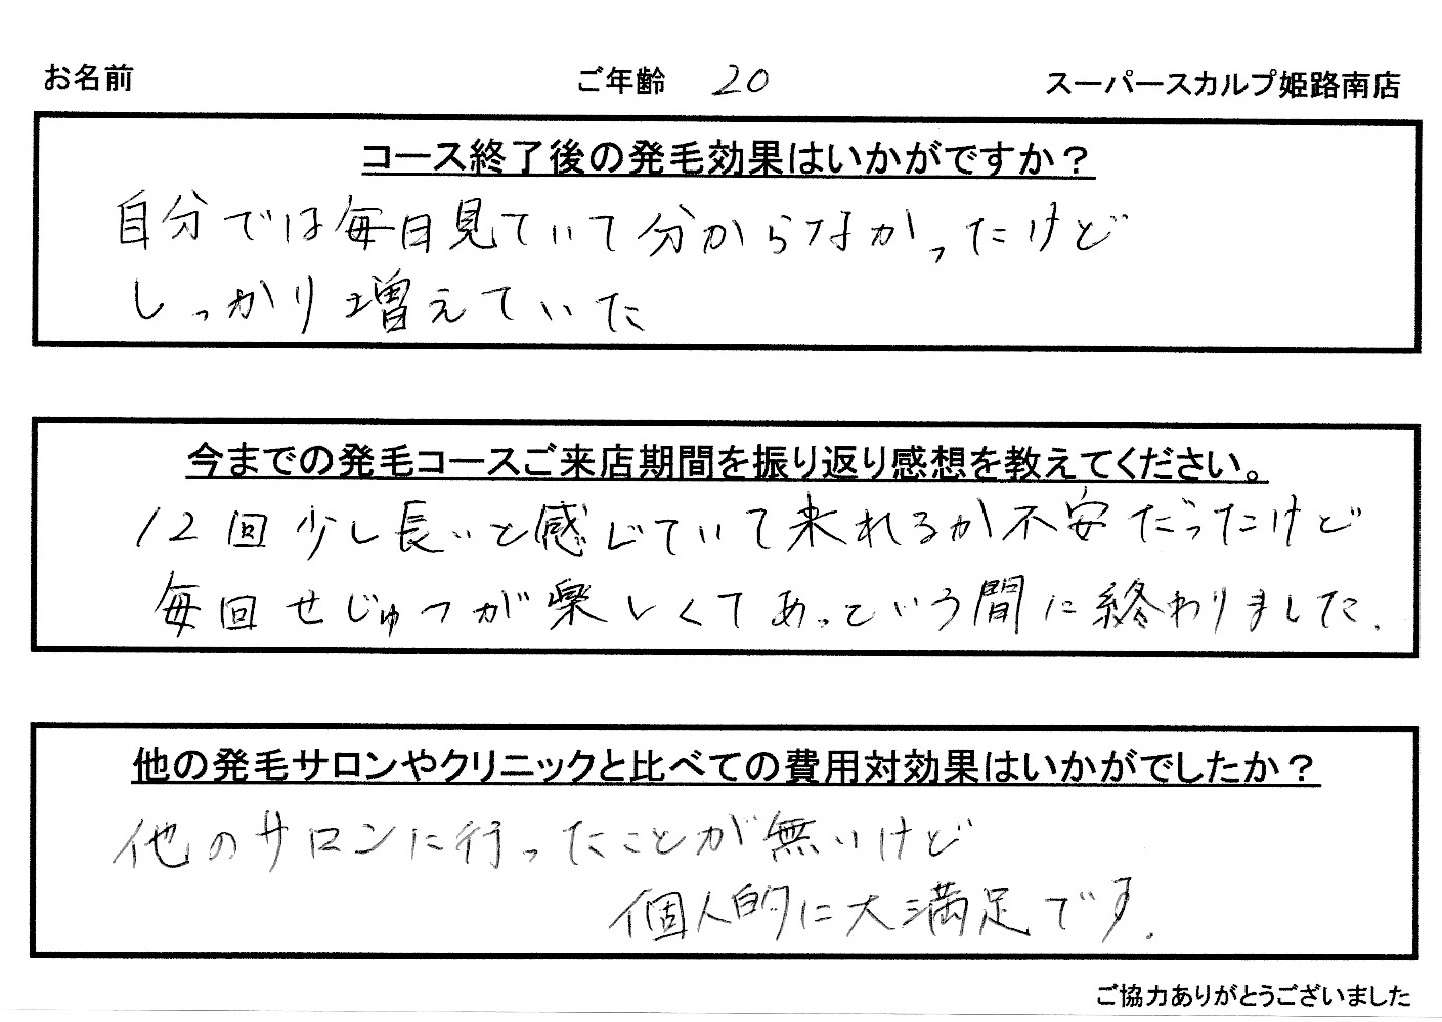 お名前 ご年齢 20 スーパースカルプ姫路南店
コース終了後の発毛効果はいかがですか？
自分では毎日見ていて分からなかったけど
しっかり増えていた
今までの発毛コースご来店期間を振り返り感想を教えてください。
12回少し長いと感じていて来れるか不安だったけど
毎回せじゅつが楽しくてあっという間に終わりました.
他の発毛サロンやクリニックと比べての費用対効果はいかがでしたか？
他のサロンに行ったことが無いけど
個人的に大満足です.
ご協力ありがとうございました